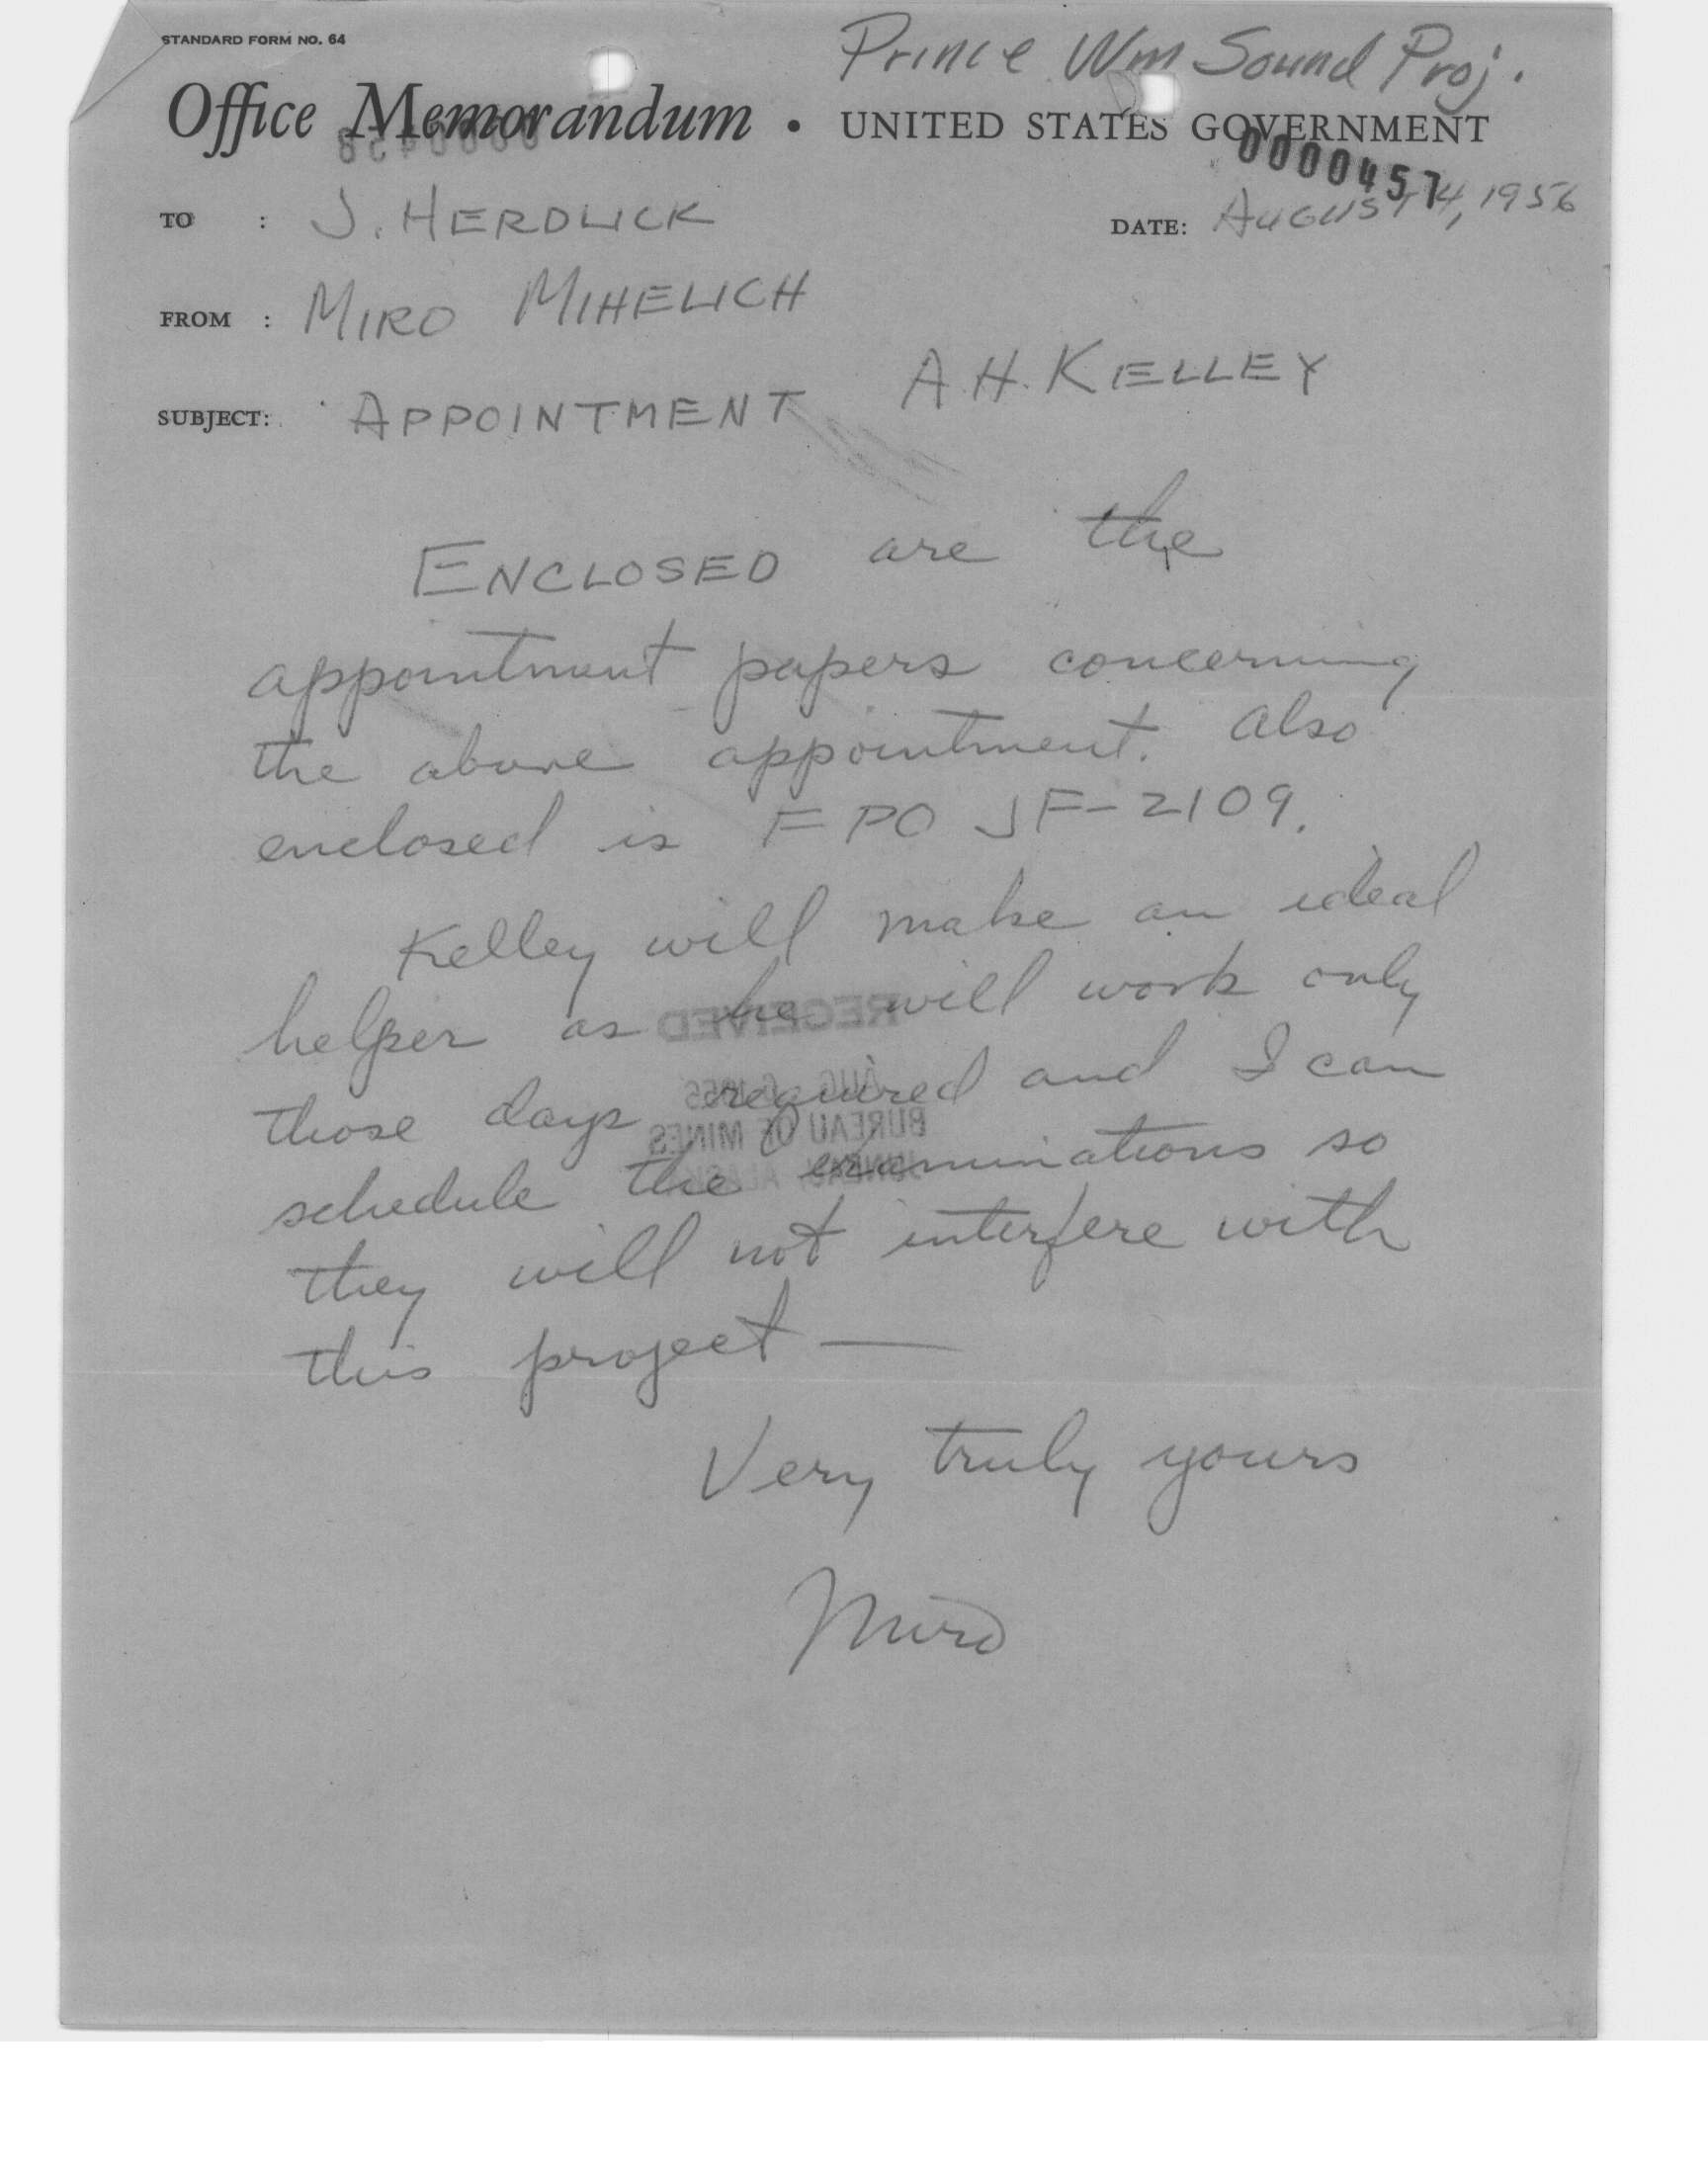 STANDARD FORM NO. 64
Prince Wm Sound Proj.
Office Memorandum • UNITED STATES GOVERNMENT
0000457
TO : J. HERDLICK
DATE: AUGUST 4, 1956
FROM : MIRO MIHELICH
SUBJECT: APPOINTMENT A.H. KELLEY
ENCLOSED are the
appointment papers concerning
the above appointment. Also
enclosed is FPO JF-2109.
Kelley will make an ideal
helper as he will work only
RECEIVED
those days required and I can
BUREAU OF MINES
schedule the examinations so
they will not interfere with
this project —
Very truly yours
Miro